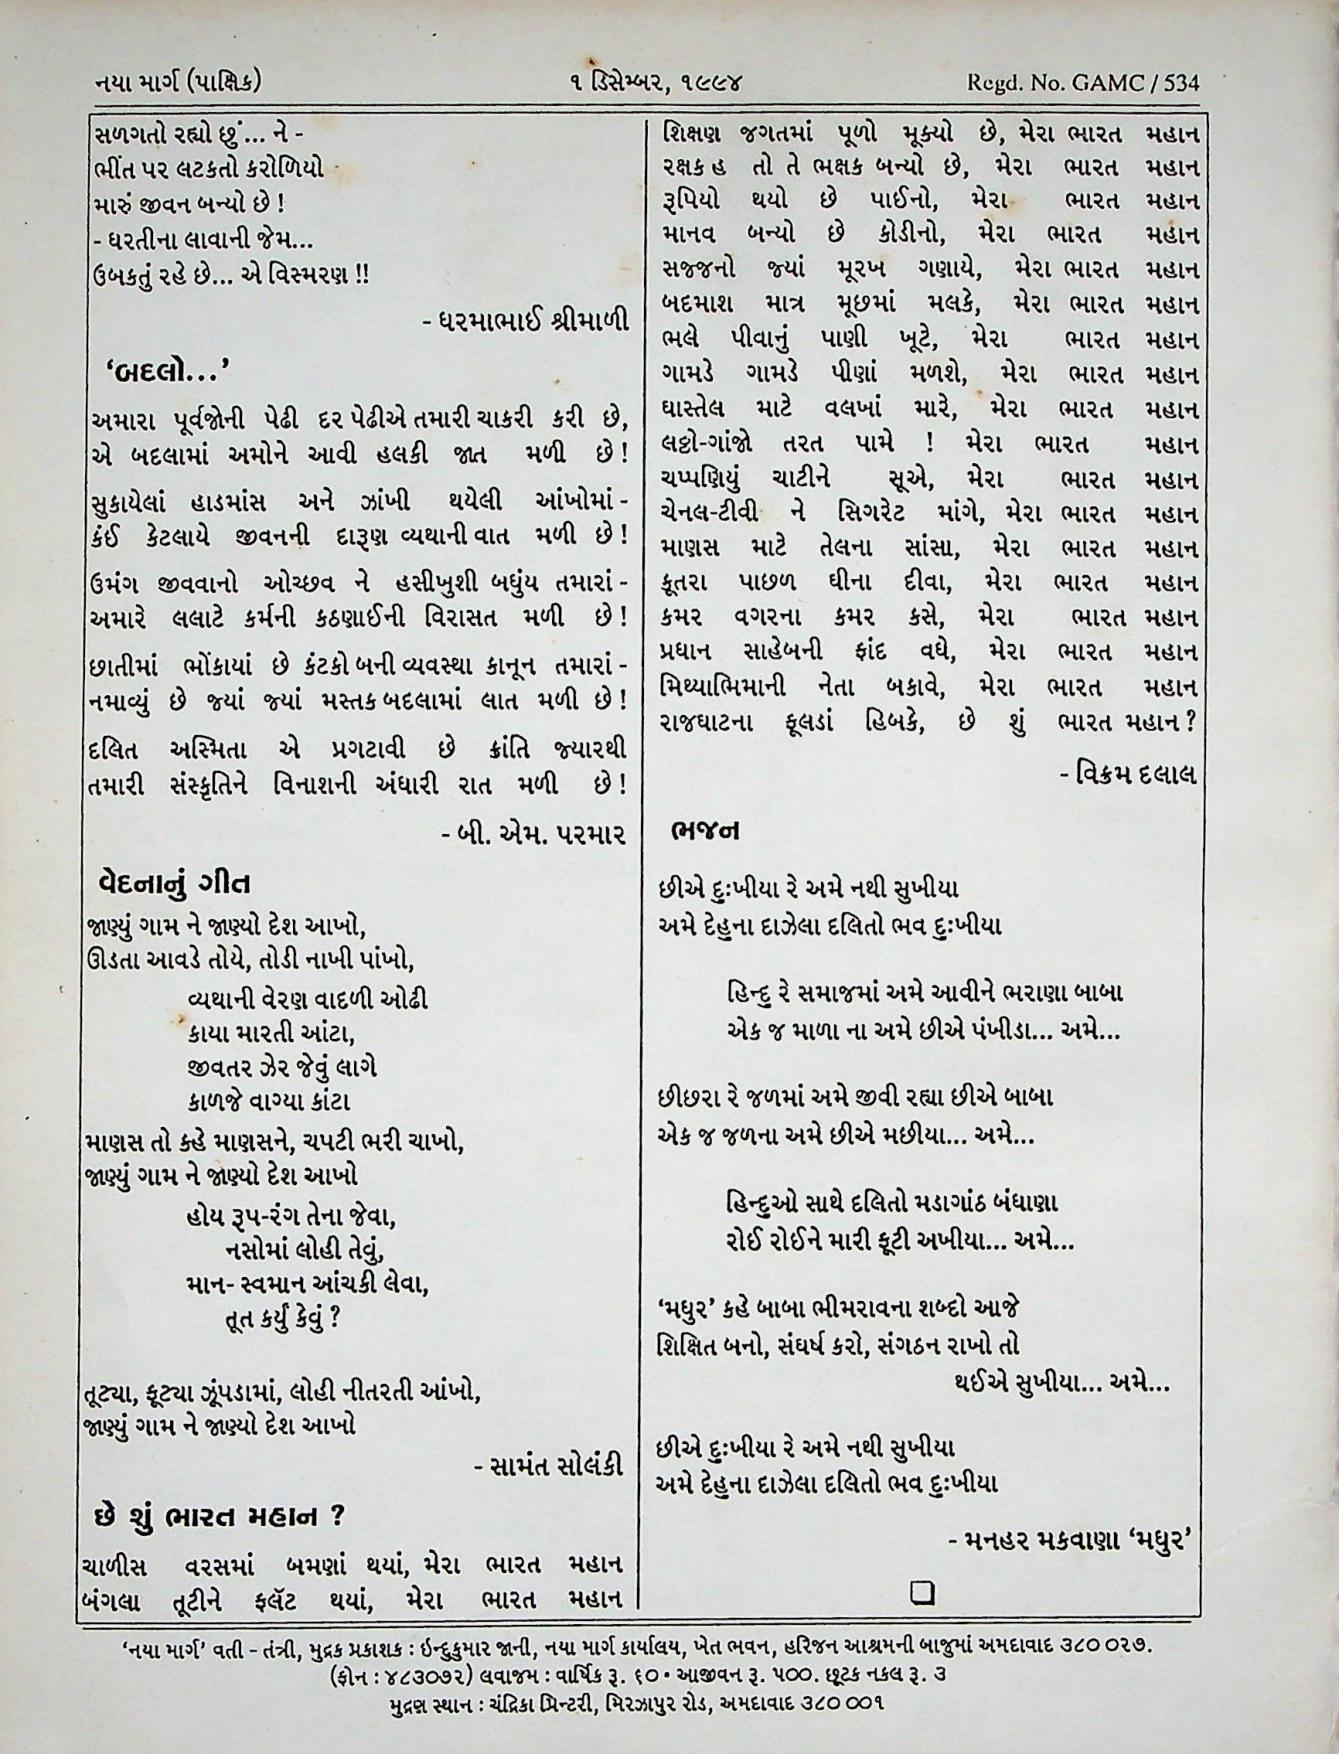 નયા માર્ગ (પાક્ષિક)
૧ ડિસેમ્બર, ૧૯૯૪
Regd. No. GAMC / 534
સળગતો રહ્યો છું... ને -
ભીંત પર લટકતો કરોળિયો
મારું જીવન બન્યો છે !
- ધરતીના લાવાની જેમ...
ઉબકતું રહે છે... એ વિસ્મરણ !!
- ધરમાભાઈ શ્રીમાળી
‘બદલો...’
અમારા પૂર્વજોની પેઢી દર પેઢીએ તમારી ચાકરી કરી છે,
એ બદલામાં અમોને આવી હલકી જાત મળી છે !
સુકાયેલાં હાડમાંસ અને ઝાંખી થયેલી આંખોમાં -
કંઈ કેટલાયે જીવનની દારૂણ વ્યથાની વાત મળી છે !
ઉમંગ જીવવાનો ઓચ્છવ ને હસીખુશી બધુંય તમારાં -
અમારે લલાટે કર્મની કઠણાઈની વિરાસત મળી છે !
છાતીમાં ભોંકાયાં છે કંટકો બની વ્યવસ્થા કાનૂન તમારાં -
નમાવ્યું છે જ્યાં જ્યાં મસ્તક બદલામાં લાત મળી છે !
દલિત અસ્મિતા એ પ્રગટાવી છે ક્રાંતિ જ્યારથી
તમારી સંસ્કૃતિને વિનાશની અંધારી રાત મળી છે !
- બી. એમ. પરમાર
વેદનાનું ગીત
જાણ્યું ગામ ને જાણ્યો દેશ આખો,
ઊડતા આવડે તોયે, તોડી નાખી પાંખો,
વ્યથાની વેરણ વાદળી ઓઢી
કાયા મારતી આંટા,
જીવતર ઝેર જેવું લાગે
કાળજે વાગ્યા કાંટા
માણસ તો કહે માણસને, ચપટી ભરી ચાખો,
જાણ્યું ગામ ને જાણ્યો દેશ આખો
હોય રૂપ-રંગ તેના જેવા,
નસોમાં લોહી તેવું,
માન- સ્વમાન આંચકી લેવા,
તૂત કર્યું કેવું ?
તૂટ્યા, ફૂટ્યા ઝૂંપડામાં, લોહી નીતરતી આંખો,
જાણ્યું ગામ ને જાણ્યો દેશ આખો
- સામંત સોલંકી
છે શું ભારત મહાન ?
ચાળીસ વરસમાં બમણાં થયાં, મેરા ભારત મહાન
બંગલા તૂટીને ફલૅટ થયાં, મેરા ભારત મહાન
શિક્ષણ જગતમાં પૂળો મૂક્યો છે, મેરા ભારત મહાન
રક્ષક હ તો તે ભક્ષક બન્યો છે, મેરા ભારત મહાન
રૂપિયો થયો છે પાઈનો, મેરા ભારત મહાન
માનવ બન્યો છે કોડીનો, મેરા ભારત મહાન
સજ્જનો જ્યાં મૂરખ ગણાયે, મેરા ભારત મહાન
બદમાશ માત્ર મૂછમાં મલકે, મેરા ભારત મહાન
ભલે પીવાનું પાણી ખૂટે, મેરા ભારત મહાન
ગામડે ગામડે પીણાં મળશે, મેરા ભારત મહાન
ઘાસ્તેલ માટે વલખાં મારે, મેરા ભારત મહાન
લઠ્ઠો-ગાંજો તરત પામે ! મેરા ભારત મહાન
ચપ્પણિયું ચાટીને સૂએ, મેરા ભારત મહાન
ચેનલ-ટીવી ને સિગરેટ માંગે, મેરા ભારત મહાન
માણસ માટે તેલના સાંસા, મેરા ભારત મહાન
કૂતરા પાછળ ઘીના દીવા, મેરા ભારત મહાન
કમર વગરના કમર કસે, મેરા ભારત મહાન
પ્રધાન સાહેબની ફાંદ વધે, મેરા ભારત મહાન
મિથ્યાભિમાની નેતા બકાવે, મેરા ભારત મહાન
રાજઘાટના ફૂલડાં હિબકે, છે શું ભારત મહાન ?
- વિક્રમ દલાલ
ભજન
છીએ દુઃખીયા રે અમે નથી સુખીયા
અમે દેહુના દાઝેલા દલિતો ભવ દુઃખીયા
હિન્દુ રે સમાજમાં અમે આવીને ભરાણા બાબા
એક જ માળા ના અમે છીએ પંખીડા... અમે...
છીછરા રે જળમાં અમે જીવી રહ્યા છીએ બાબા
એક જ જળના અમે છીએ મછીયા... અમે...
હિન્દુઓ સાથે દલિતો મડાગાંઠ બંધાણા
રોઈ રોઈને મારી ફૂટી અખીયા... અમે...
‘મધુર’ કહે બાબા ભીમરાવના શબ્દો આજે
શિક્ષિત બનો, સંઘર્ષ કરો, સંગઠન રાખો તો
થઈએ સુખીયા... અમે...
છીએ દુઃખીયા રે અમે નથી સુખીયા
અમે દેહુના દાઝેલા દલિતો ભવ દુઃખીયા
- મનહર મકવાણા ‘મધુર’
‘નયા માર્ગ’ વતી – તંત્રી, મુદ્રક પ્રકાશક : ઇન્દુકુમાર જાની, નયા માર્ગ કાર્યાલય, ખેત ભવન, હરિજન આશ્રમની બાજુમાં અમદાવાદ ૩૮૦ ૦૨૭.
(ફોન : ૪૮૩૦૭૨) લવાજમ : વાર્ષિક રૂ. ૬૦ • આજીવન રૂ. ૫૦૦. છૂટક નકલ રૂ. ૩
મુદ્રણ સ્થાન : ચંદ્રિકા પ્રિન્ટરી, મિરઝાપુર રોડ, અમદાવાદ ૩૮૦ ૦૦૧